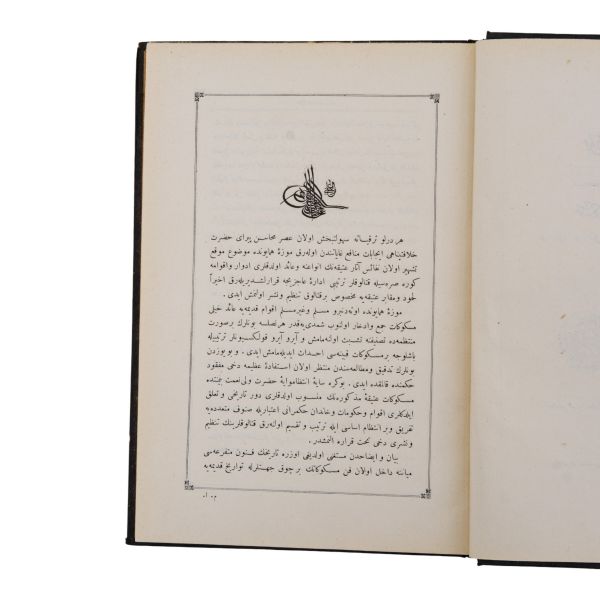 هر درلو ترقیاته سهولتبخش اولان عصر محاسن پیرای حضرت
خلافتپناهی ایجابات منافع غایاتندن اوله‌رق موزهٔ همایونده موضوع موقع
تشهیر اولان نفائس آثار عتیقه‌نك انواعنه و عائد اولدقلری ادوار واقوامه
کوره صره‌سیله قتالوقلر ترتیبی ادارهٔ عاجزیجه قرارلشدیریله‌رق اخیراً
لحود و مقابر عتیقه‌یه مخصوص بر قتالوق تنظیم و نشر اولنمش ایدی .
موزهٔ همایونده اوته‌دنبرو مسلم و غیرمسلم اقوام قدیمه‌یه عائد خیلی
مسکوکات جمع و ادخار اولنوب شمدی‌یه‌قدر هر نصلسه بونلرك بر صورت
منتظمه‌ده تصنیفنه تشبث اولنه‌مامش و آیرو آیرو قولکسیونلر ترتیبیله
باشلوجه بر مسکوکات قبینه‌سی احداث ایدیله‌مامش ایدی . و بو یوزدن
بونلرك تدقیق و مطالعه‌سندن منتظر اولان استفادهٔ عظیمه دخی مفقود
حکمنده قالمقده ایدی . بوکره سایهٔ انتظاموایهٔ حضرت ولی نعمت بمنتده
مسکوکات عتیقهٔ مذکوره‌نك منسوب اولدقلری دور تاریخی و تعلق
ایلدکلری اقوام و حکومات و خاندان حکمرانی اعتباریله صنوف متعدده‌یه
تفریق و بر انتظام اساسی ایله ترتیب و تقسیم اوله‌رق قتالوقلرینك تنظیم
و نشری دخی تحت قراره المشدر .
بیان و ایضاحدن مستغنی اولدیغی اوزره تاریخك فنون متفرعه‌سی
میاننه داخل اولان فن مسکوکاتك بر چوق جهتلرله تواریخ قدیمه‌یه
م . ا .